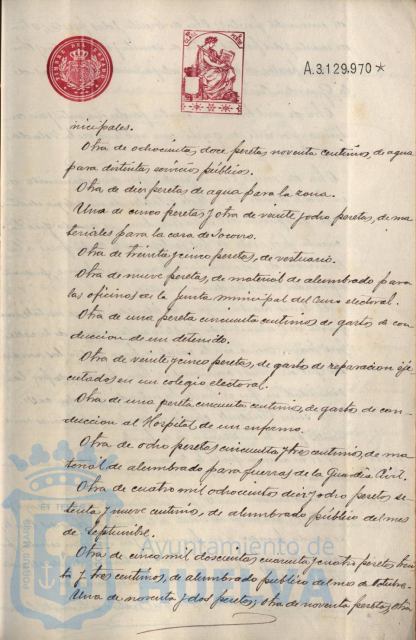 A.3.129.970*
nicipales.
Otra de ochocientas doce pesetas noventa centimos, de agua
para distintos servicios públicos.
Otra de diez pesetas de agua para la zona.
Una de cinco pesetas y otra de veinte y ocho pesetas, de ma-
teriales para la casa de Socorro.
Otra de treinta y cinco pesetas, de vestuario.
Otra de nueve pesetas, de material de alumbrado para
las oficinas de la Junta municipal del Censo electoral.
Otra de una peseta cincuenta centimos de gastos de con-
duccion de un detenido.
Otra de veinte y cinco pesetas, de gastos de reparacion eje-
cutados en un colegio electoral.
Otra de una peseta cincuenta centimos, de gastos de con-
duccion al Hospital de un enfermo.
Otra de ocho pesetas cincuenta y tres centimos, de ma-
terial de alumbrado para fuerzas de la Guardia Civil.
Otra de cuatro mil ochocientas diez y ocho pesetas se-
tenta y nueve centimos, de alumbrado público del mes
de Septiembre.
Otra de cinco mil doscientas cuarenta y cuatro pesetas trein-
ta y tres centimos, de alumbrado publico del mes de Octubre.
Una de noventa y dos pesetas, otra de noventa pesetas, otra
Ayuntamiento de